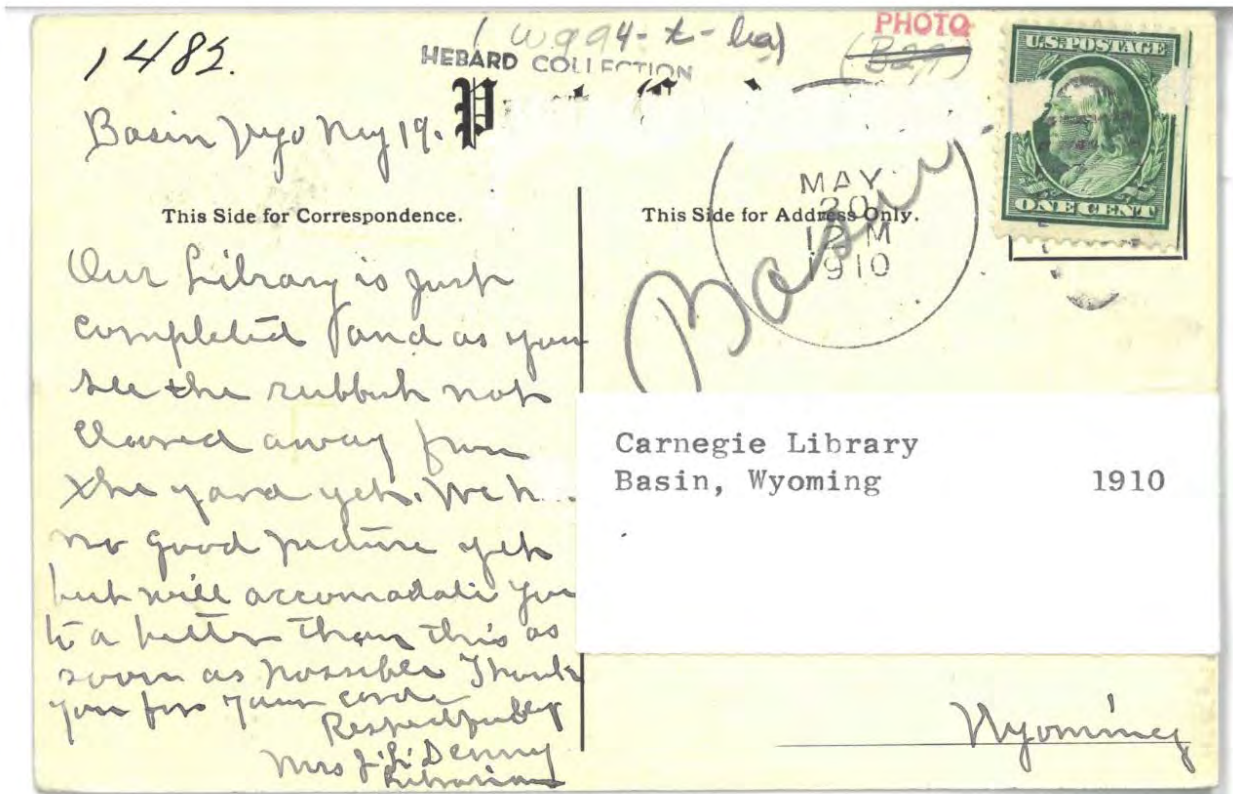 1482.
(W994-t-ba)
PHOTO
HEBARD COLLECTION
(Bag)
U.S. POSTAGE
ONE CENT
Basin Wyo May 19.
MAY
20
12 M
1910
This Side for Correspondence.
This Side for Address Only.
Basin
Our Library is just
completed and as you
see the rubbish not
cleared away from
the yard yet. We h
no good picture yet
but will accomodate you
to a better than this as
soon as possible Thank
you for your card
Respectfully
Mrs J. L. Denny
Librarian
Carnegie Library
Basin, Wyoming 1910
Wyoming